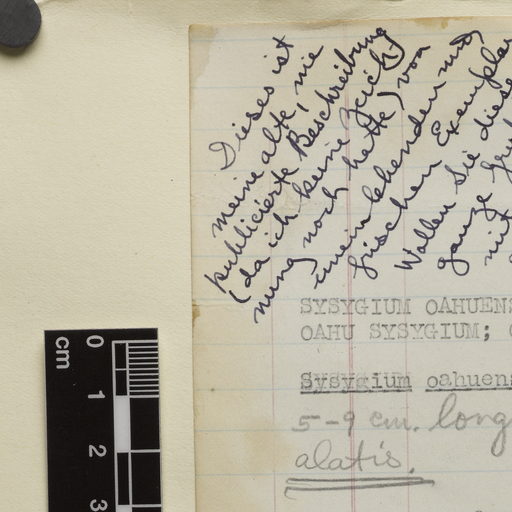 Dieses ist
meine alte, nie
publicierte Beschreibung
(da ich keine Zeich-
nung noch hatte) von
einem lebenden und
frischen Exemplar
Wollen Sie diese
ganze
mit
SYSYGIUM OAHUENS
OAHU SYSYGIUM;
Sysygium oahuens
5--9 cm. long
alatis.
cm
0
1
2
3